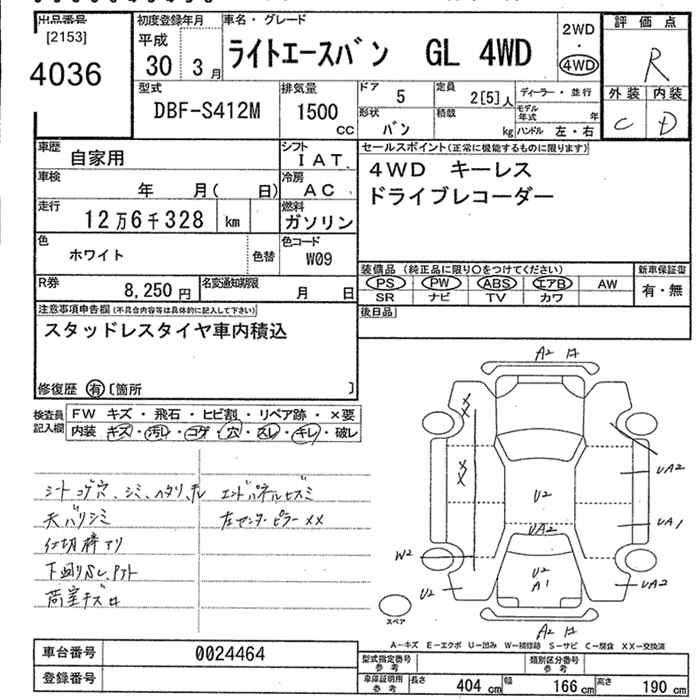 出品番号
[2153]
4036
初度登録年月
平成
30 3月
車名・グレード
ライトエースバン GL 4WD
2WD
・
4WD
評価点
R
外装 内装
C D
型式
DBF-S412M
排気量
1500
CC
ドア
5
定員
2[5]人
ディーラー・並行
形状
バン
積載
kg
モデル年式 年
ハンドル 左・右
車歴
自家用
シフト
IAT
セールスポイント(正常に機能するものに限ります)
4WD キーレス
ドライブレコーダー
車検
年 月( 日)
冷房
AC
走行
12万6千328 km
燃料
ガソリン
色
ホワイト
色替
色コード
W09
装備品 (純正品に限り○をつけてください)
PS PW ABS エアB AW
SR ナビ TV カワ
新車保証書
有・無
R券
8,250円
名変通知期限
月 日
後日品
注意事項申告欄(不具合内容等は具体的に記入して下さい)
スタッドレスタイヤ車内積込
修復歴 有 [箇所 ]
検査員記入欄
FW キズ・飛石・ヒビ割・リペア跡・×要
内装 キズ・汚レ・コゲ・穴・スレ・キレ・破レ
シートコゲ穴、シミ、ヘタリ、キレ
天バリシミ
仕切棒アリ
下廻りサビ
荷室キズ
エンドパネルヒズミ
左センターピラーXX
A2
XX
XX
UA2
U2
UA1
UA2
W2
U2
U2
A1
UA2
A2
スペア
A-キズ E-エクボ U-凹み W-補修跡 S-サビ C-腐食 XX-交換済
車台番号
0024464
登録番号
型式指定番号
参考
類別区分番号
参考
車庫証明用
参考
長さ 404 cm 幅 166 cm 高さ 190 cm